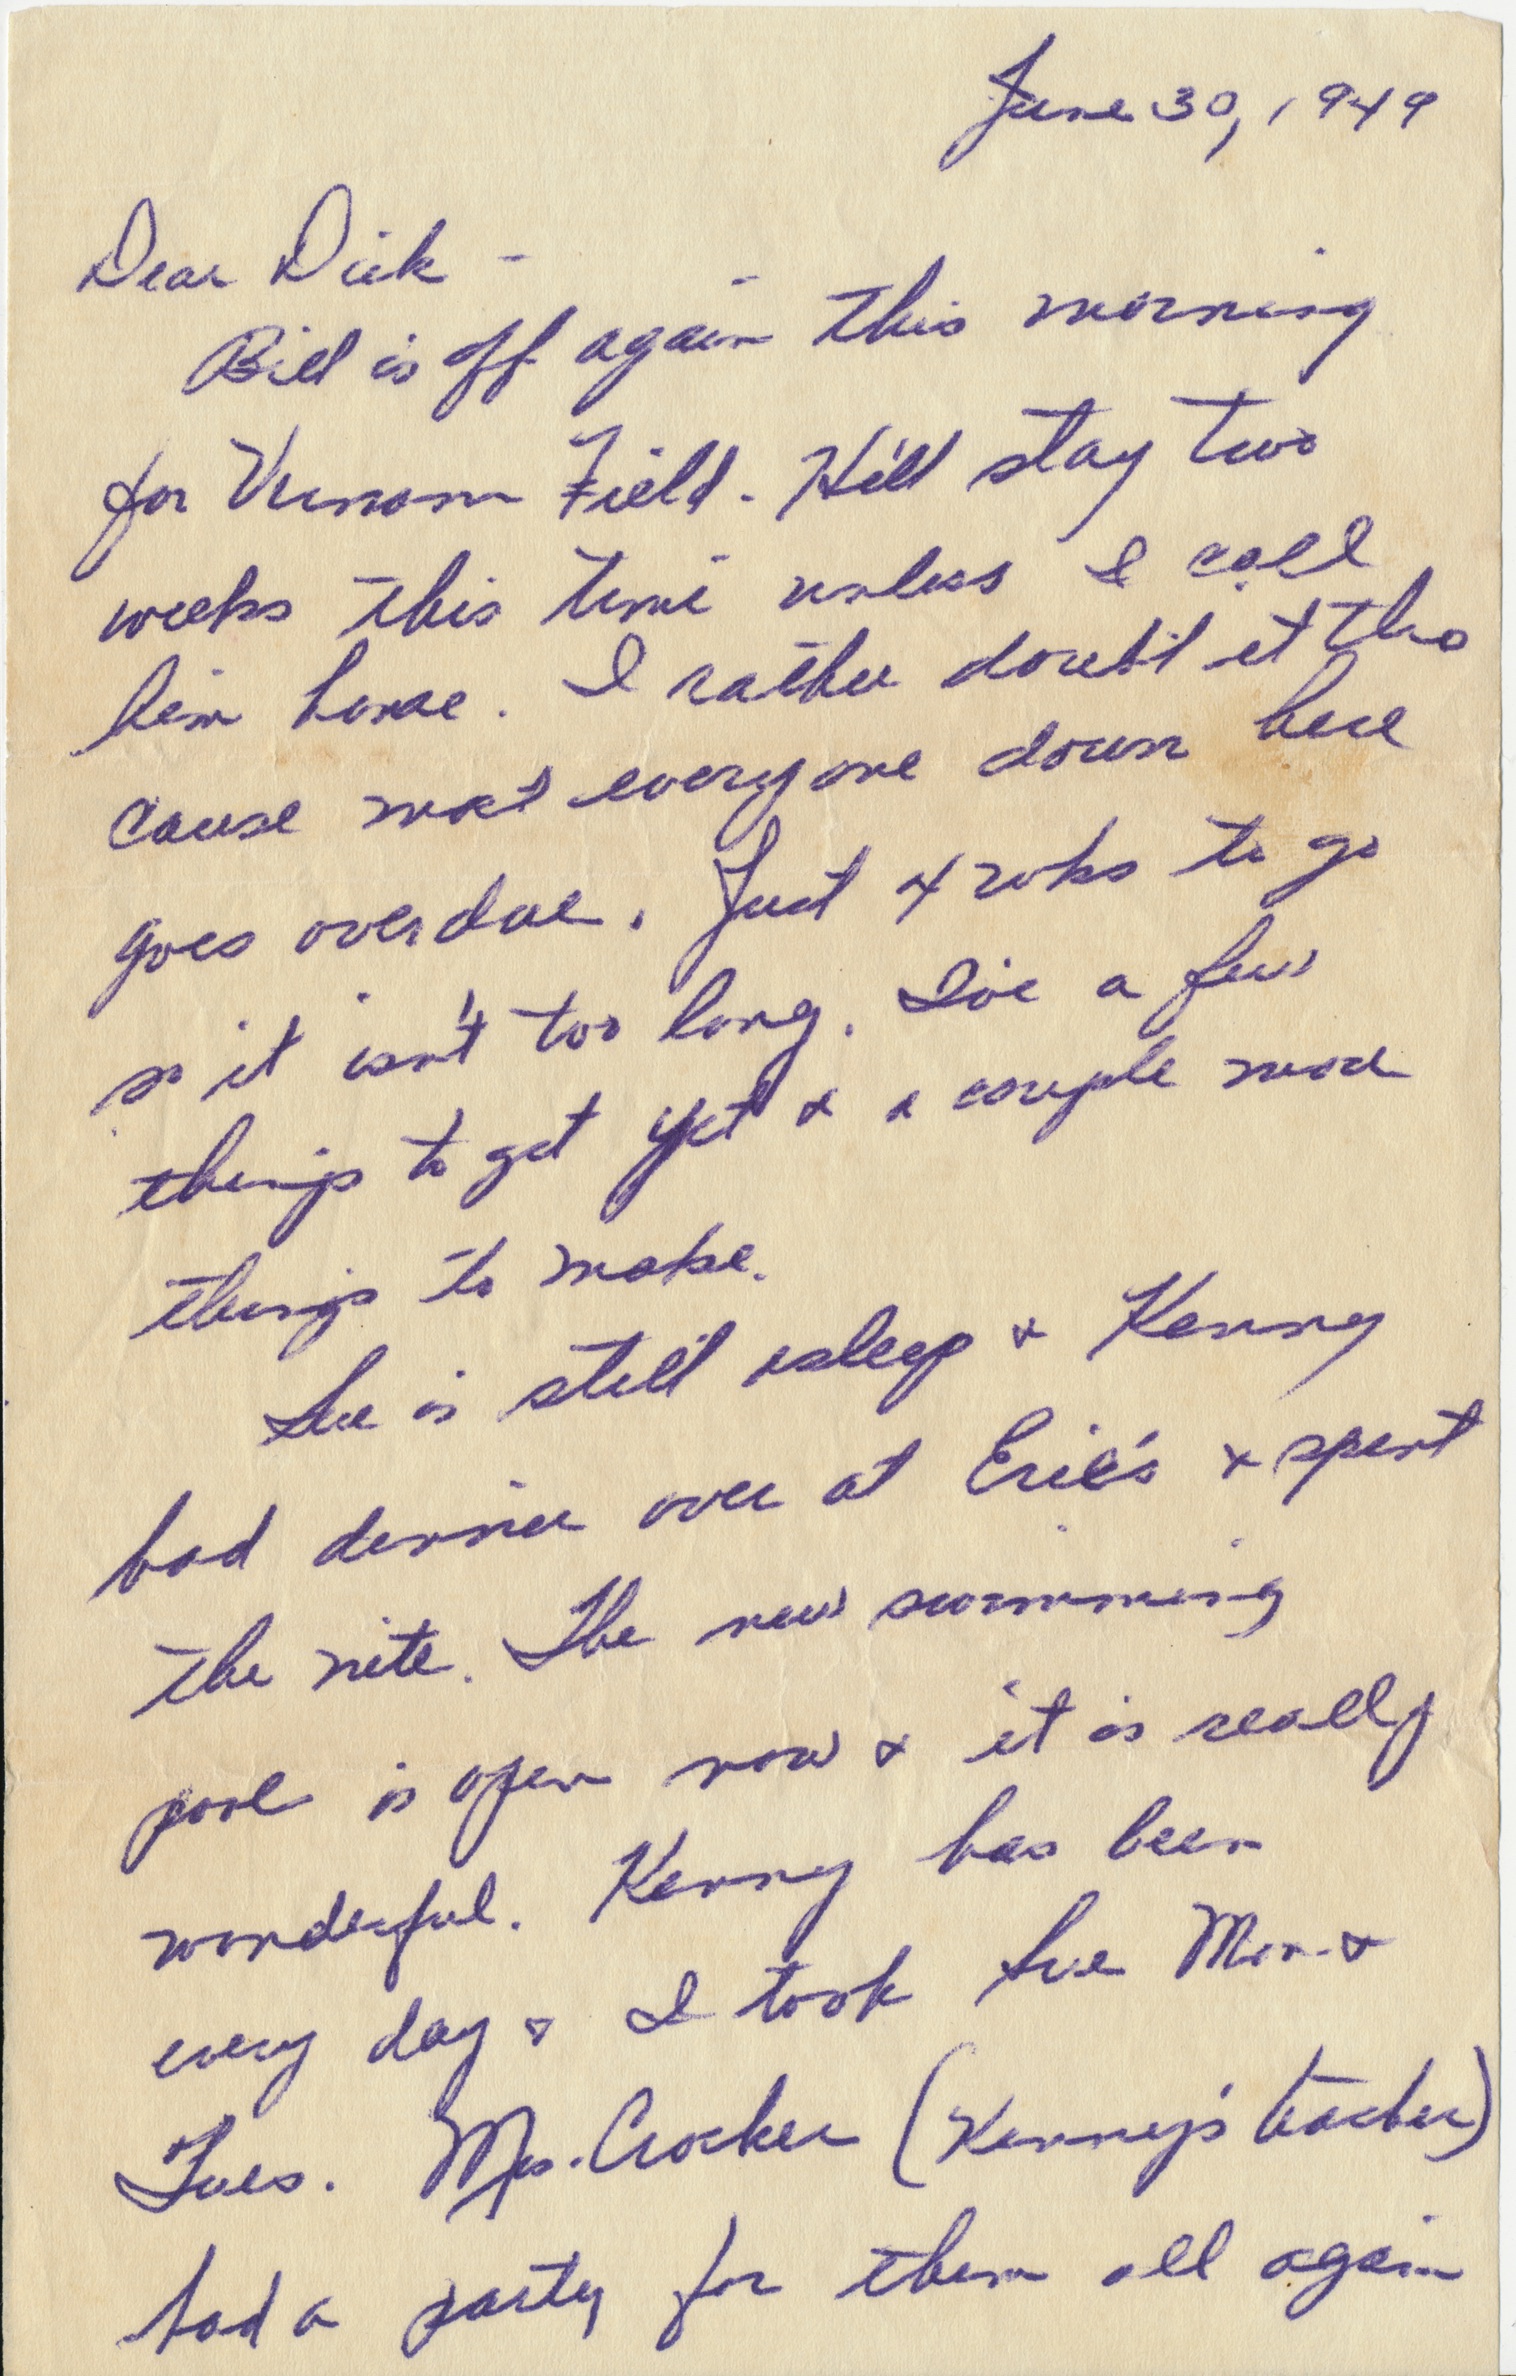 June 30, 1949
Dear Dick -
Bill is off again this morning
for Vernam Field. He'll stay two
weeks this time unless I call
him home. I rather doubt it tho
cause most everyone down here
goes overdue. Just 4 wks to go
so it isn't too long. I've a few
things to get yet & a couple more
things to make.
Sue is still asleep & Kenny
had dinner over at Eric's & spent
the nite. The new swimming
pool is open now & it is really
wonderful. Kenny has been
every day & I took Sue Mon. &
Tues. Mrs. Crocker (Kenny's teacher)
had a party for them all again